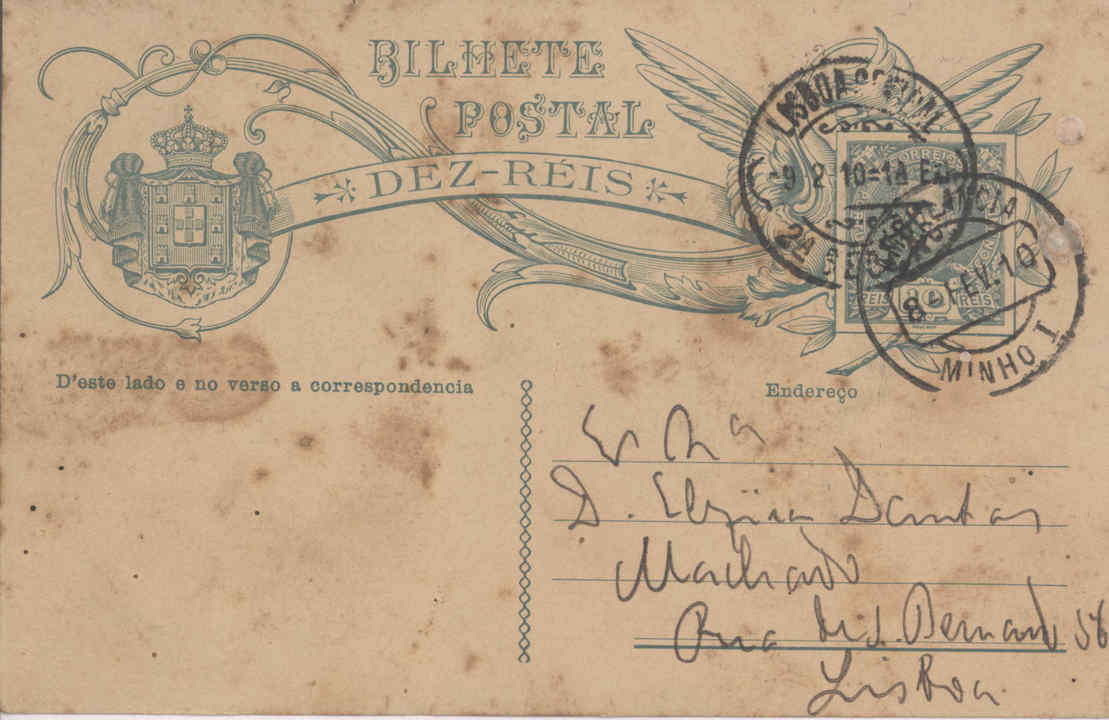 BILHETE
POSTAL
DEZ-RÉIS
LISBOA CENTRAL
9 2 10
2A
CORREIOS
REIS 10 REIS
AMBULANCIA
8-FEV.10
MINHO I
D'este lado e no verso a correspondencia
Endereço
D. Elzira Dantas
Machado
Rua de S. Bernardo 56
Lisboa